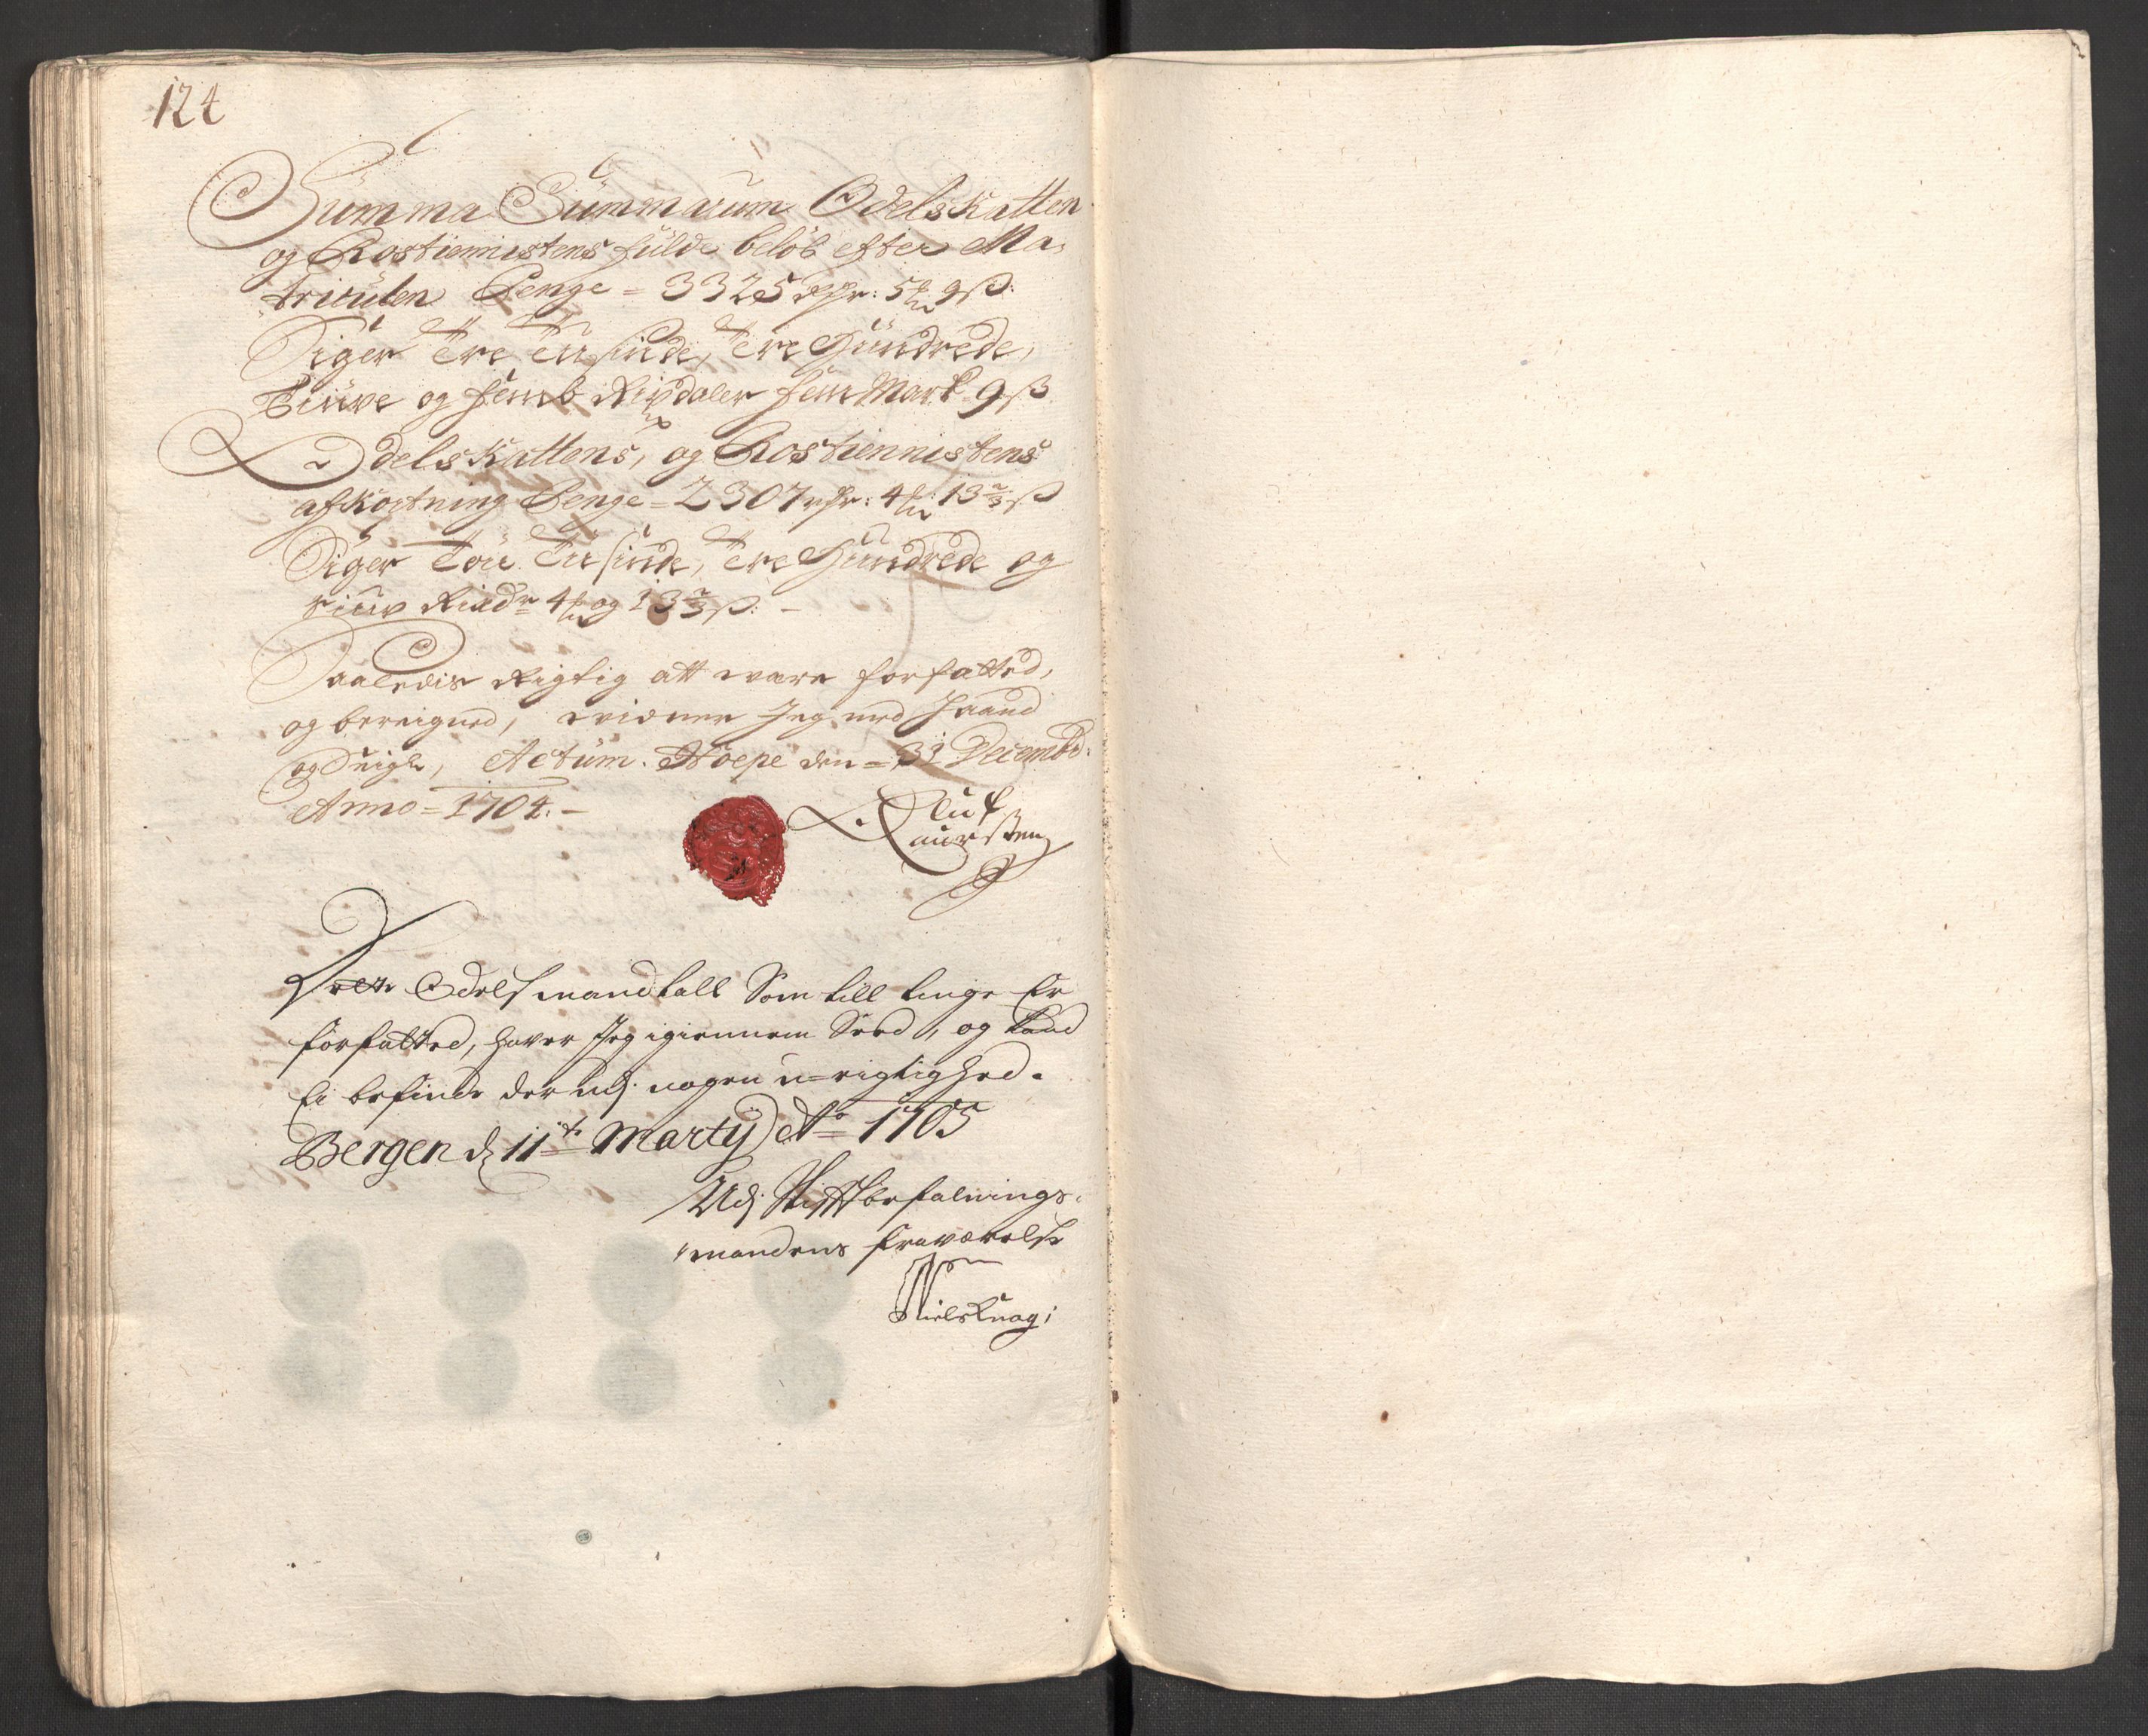 124
Summa Summarum Odelskatten
og Rostiennistens fulde beløb efter Ma,
triculen Penge = 3325 rdr: 5 ₻ 9 ß:
Siger Tre Tusinde, Tre Hundrede,
Tiuve og femb Rixdaler fem Mark 9 ß
Odelskattens, og Rostiennistens
afkortning Penge = 2307 rdr: 4 ₻: 13⅔ ß
Siger Tou Tusinde, Tre Hundrede og
siuv Rixdr 4 ₻ og 13⅔ ß: -
Saaledis Rigtig att være forfatted,
og bereigned, vidner Jeg med Haand
og Actum. Hoepe den = 31 Decembr:
Anno = 1704. -
Oluf
Laurssen
Dette Odelsmandtall Som till tinge Er
forfatted, haver Jeg igiennem Seed, og kand
Ei befinde der udj nogen u-rigtighed.
Bergen d 11te Martij Ao 1705
Udj Stiftbefalnings-
mandens fraværelse
Niels Knag;